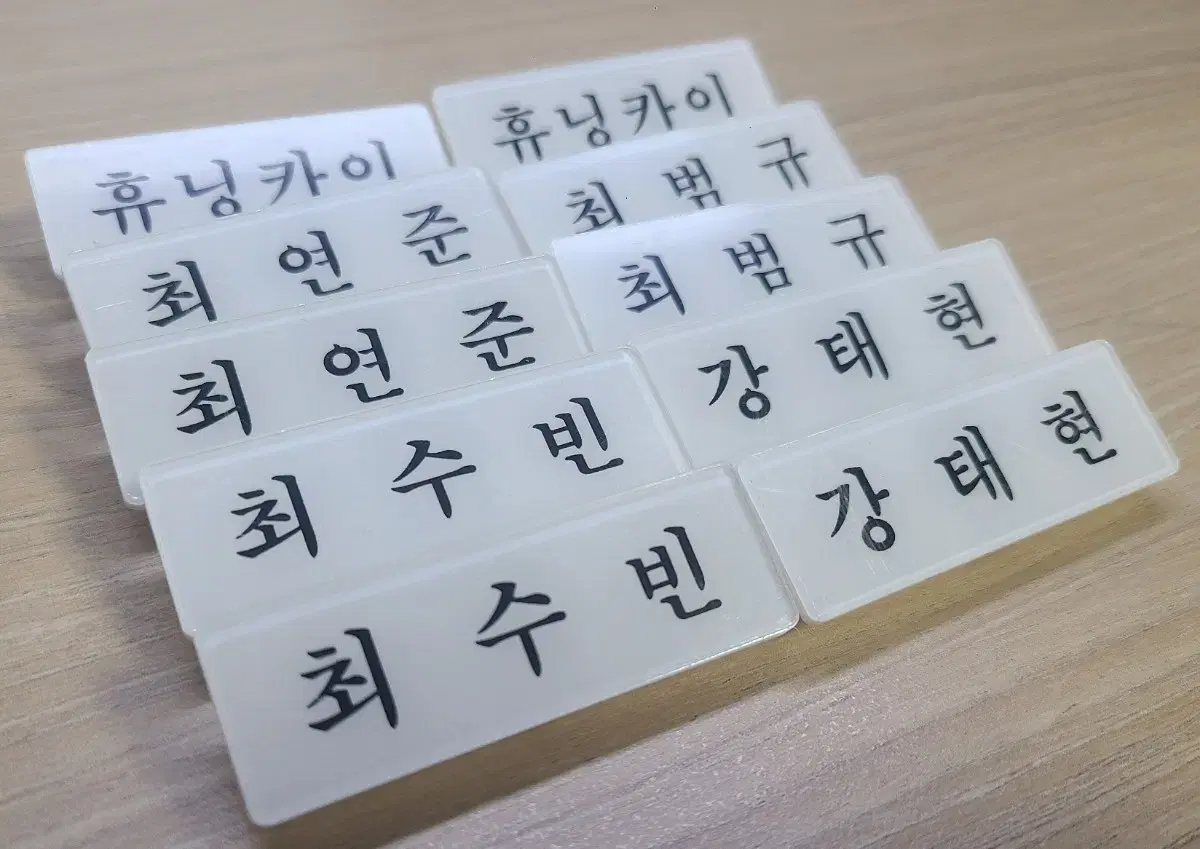 휴닝카이
최연준
최연준
최수빈
최수빈
휴닝카이
최범규
최범규
강태현
강태현